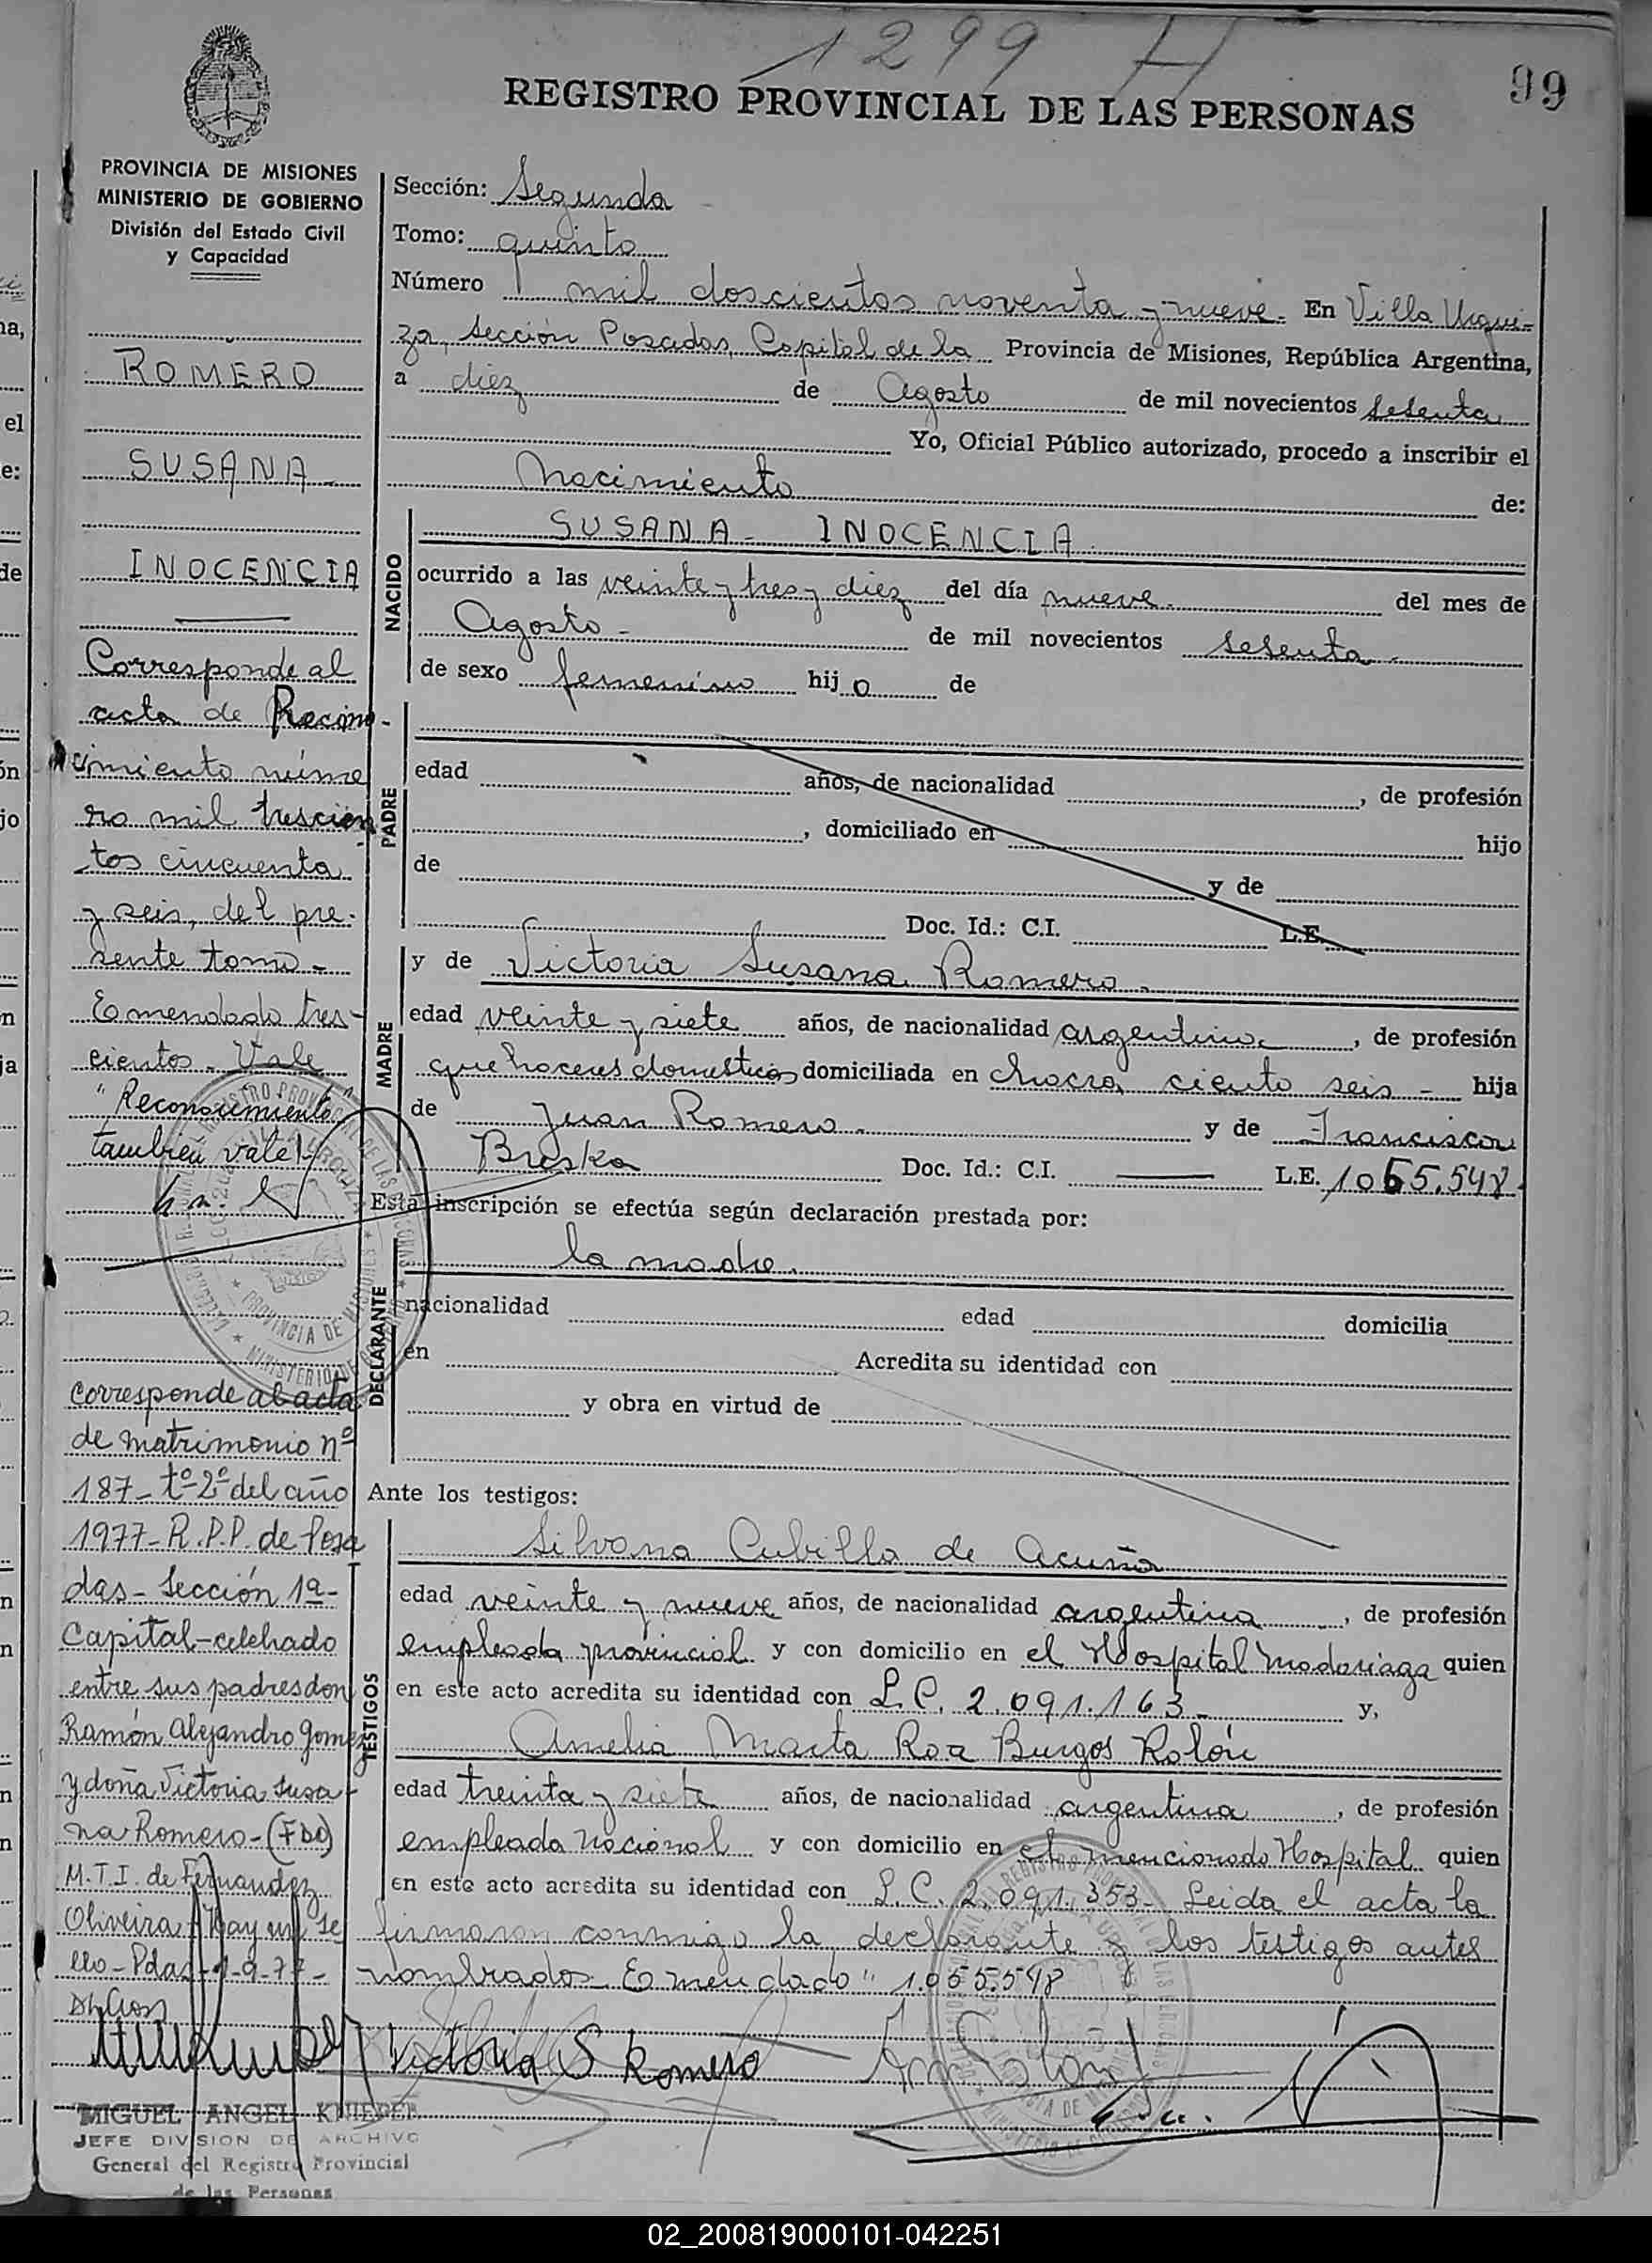 1299 H
99
REGISTRO PROVINCIAL DE LAS PERSONAS
PROVINCIA DE MISIONES
MINISTERIO DE GOBIERNO
División del Estado Civil
y Capacidad
ROMERO
SUSANA
INOCENCIA
Corresponde al
acta de Recono-
cimiento núme
ro mil trescien
tos cincuenta
y seis, del pre-
sente tomo -
Emendado tres-
cientos. Vale
"Reconocimiento"
también vale!
corresponde al acta
de matrimonio nº
187 - tº 2º del año
1977 - R.P.P. de Posa
das - Sección 1ª -
Capital - celebrado
entre sus padres don
Ramón Alejandro Gomez
y doña Victoria Susa
na Romero - (FDO)
M.T.I. de Fernandez
Oliveira - Hay un se
llo - Pdas - 1-9-77 -
MIGUEL ANGEL
JEFE DIVISION DE ARCHIVO
General del Registro Provincial
de las Personas
Sección: Segunda
Tomo: quinto
Número mil doscientos noventa y nueve. En Villa Urqui-
za, Sección Posadas, Capital de la Provincia de Misiones, República Argentina,
a diez de Agosto de mil novecientos sesenta
Yo, Oficial Público autorizado, procedo a inscribir el
Nacimiento de:
NACIDO
SUSANA - INOCENCIA
ocurrido a las veinte y tres y diez del día nueve. del mes de
Agosto - de mil novecientos sesenta -
de sexo femenino hij o de
PADRE
edad años, de nacionalidad , de profesión
, domiciliado en hijo
de y de
Doc. Id.: C.I. L.E.
MADRE
y de Victoria Susana Romero.
edad veinte y siete años, de nacionalidad argentina , de profesión
quehaceres domesticos domiciliada en chacra ciento seis - hija
de Juan Romero. y de Francisca
Doc. Id.: C.I. — L.E. 1065.548.
Esta inscripción se efectúa según declaración prestada por:
DECLARANTE
la madre.
nacionalidad edad domicilia
en Acredita su identidad con
y obra en virtud de
Ante los testigos:
TESTIGOS
Silvana Cubilla de Acuña
edad veinte y nueve años, de nacionalidad argentina , de profesión
empleada provincial y con domicilio en el Hospital Madariaga quien
en este acto acredita su identidad con L.C. 2.091.163 - y,
Amelia Marta Roa Burgos Rolón
edad treinta y siete años, de nacionalidad argentina , de profesión
empleada nacional y con domicilio en el mencionado Hospital quien
en este acto acredita su identidad con L.C. 2.091.353 - Leida el acta la
firmaron conmigo la declarante y los testigos antes
nombrados - Emendado "1.065.548
Victoria S Romero
02_200819000101-042251